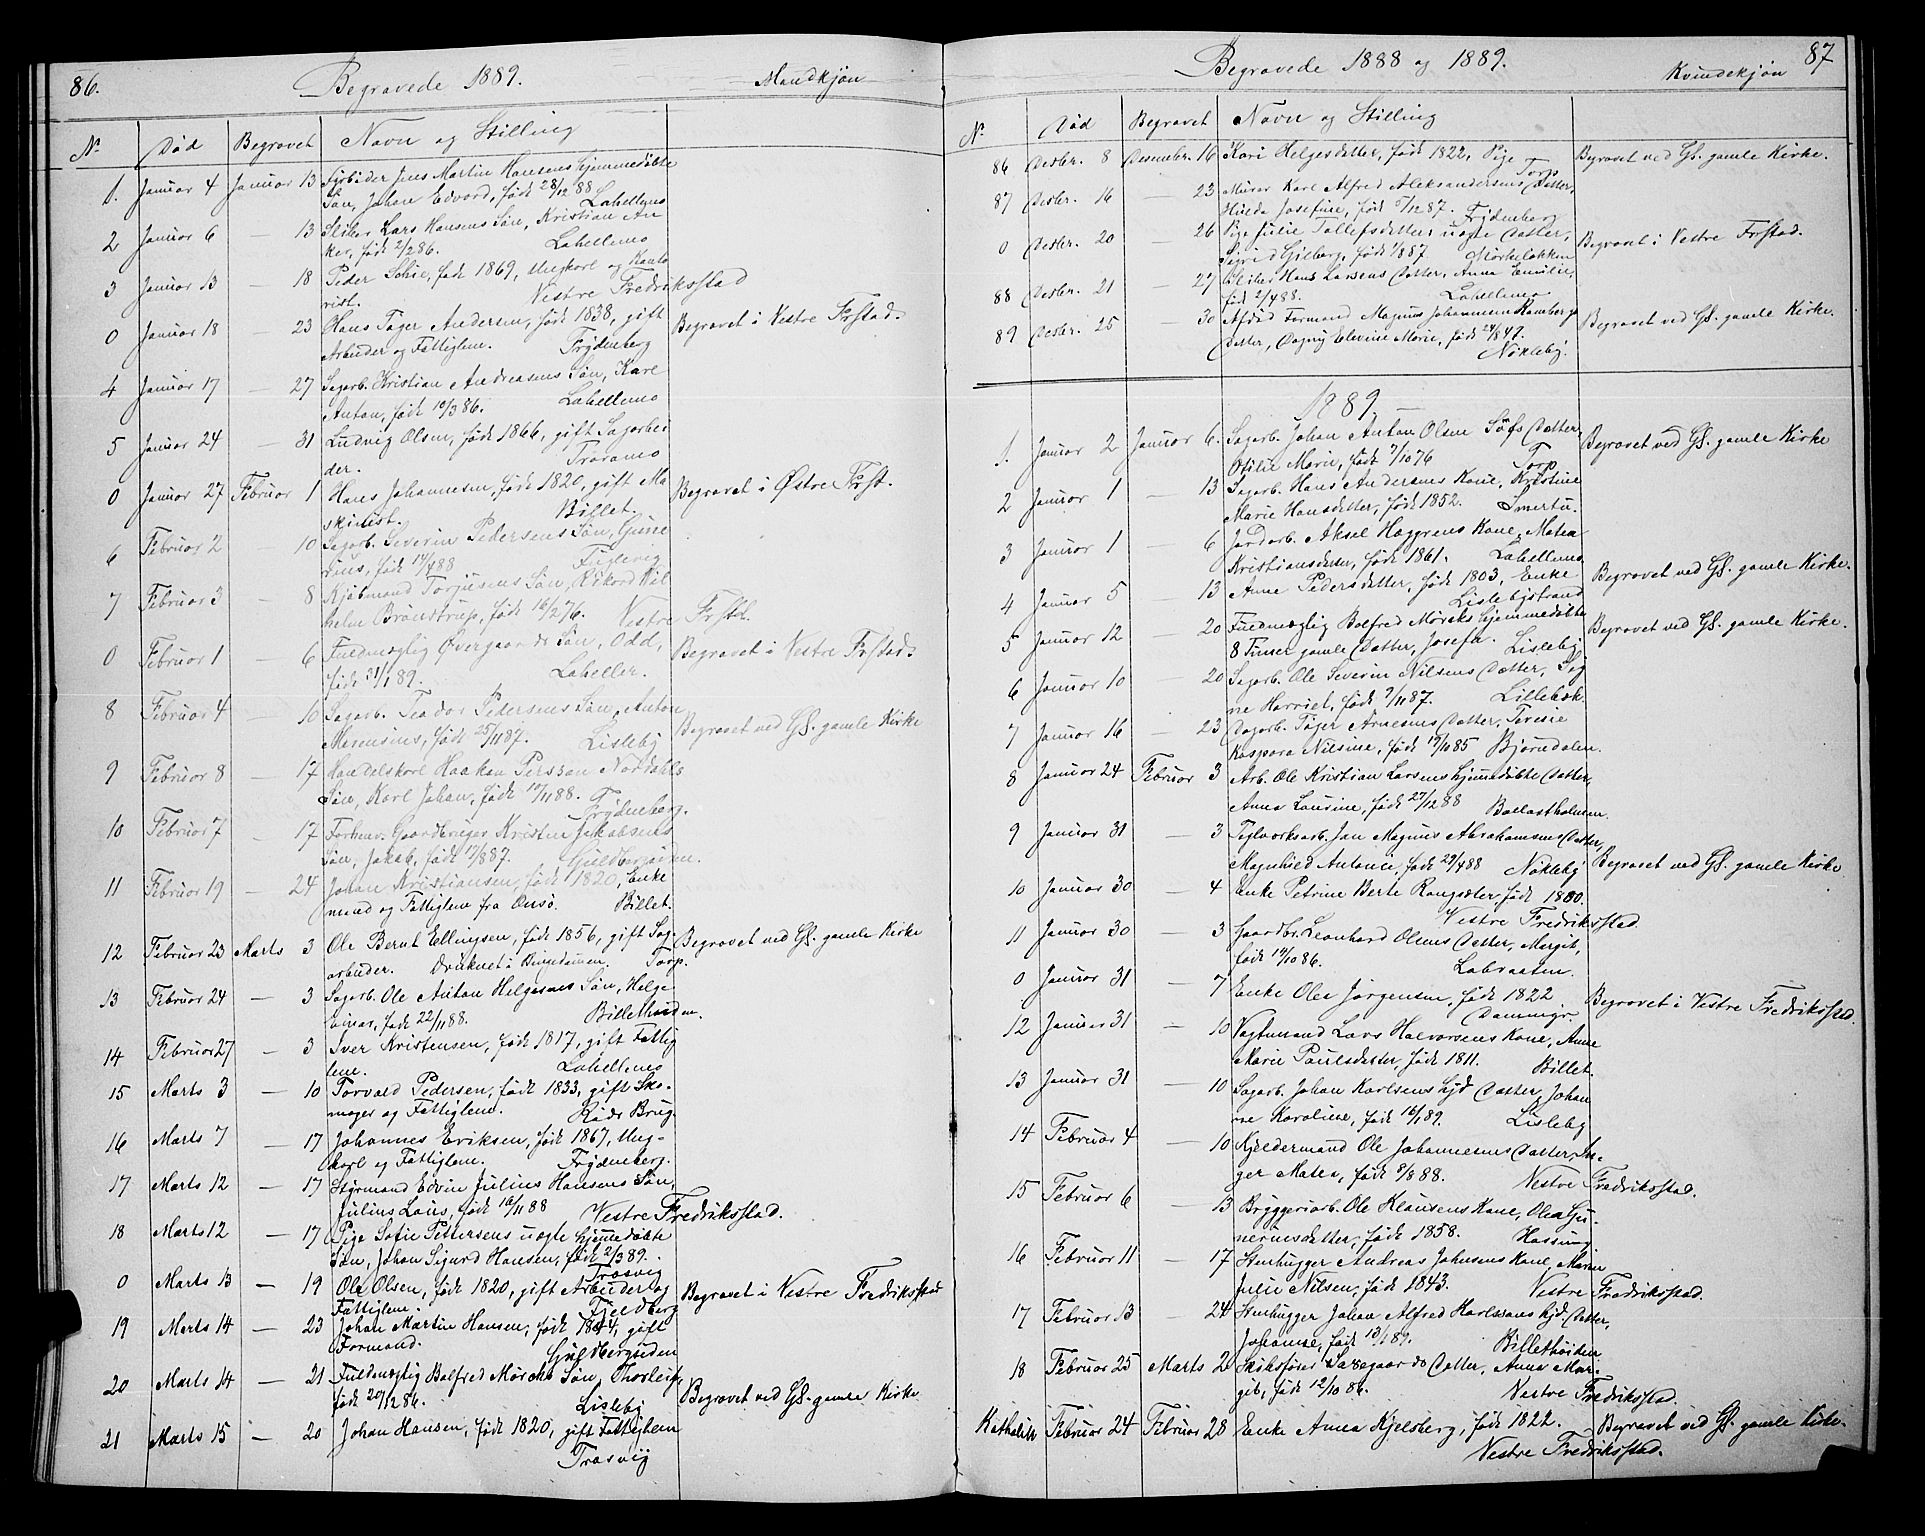 86.
Begravede 1889.
Mandkjøn
No
Død
Begravet
Navn og Stilling
1. Januar 4 Januar 13 Arbeider Jens Martin Hansens hjemmedøbte
Søn, Johan Edvard, født 28/12 88. Lahellemo
2 Januar 6 — 13 Sliber Lars Hansens Søn, Kristian An
ker, født 2/2 86. Lahellemo
3 Januar 13 18 Peder Schie, født 1869, Ungkarl og Konto
rist. Vestre Fredriksstad
0 Januar 18 — 23 Hans Tøger Andersen, født 1838, gift Begravet i Vestre Frstad.
Arbeider og Fattiglem. Frydenberg
4 Januar 17 — 27 Sagarb. Kristian Andreasens Søn, Karl
Anton, født 10/3 86. Lahellemo
5 Januar 24 — 31 Ludvig Olsen, født 1866, gift Sagarbei
der. Traramo
0 Januar 27 Februar 1 Hans Johannesen, født 1820, gift Ma Begravet i Østre Frst.
skinist. Billet.
6 Februar 2 — 10 Sagarb. Severin Pedersens Søn, Gune
rius, født 14/4 88 Fuglevig
7 Februar 3 — 8 Kjøbmand Torjusens Søn, Rikard Vil
helm Brønstrup, født 16/2 76. Vestre Frstd.
0 Februar 1 — 6 Fuldmægtig Øvergaards Søn, Odd, Begravet i Vestre Frstad.
født 31/1 89. Laheller.
8 Februar 4 — 10 Sagarb. Teodor Pedersens Søn, Anton Begravet ved Gl. gamle Kirke
Marensius, født 25/11 87. Lisleby
9 Februar 8 — 17 Handelskarl Haakan Persson Nordahls
Søn, Karl Johan, født 17/11 88. Frydenberg.
10 Februar 7 — 17 Forhenv. Gaardbruger Kristen Jakobsens
Søn, Jakob, født 17/8 87.
11 Februar 19 — 24 Johan Kristiansen, født 1820, Enke
mand og Fattiglem fra Onsø. Billet.
12 Februar 23 Marts 3 Ole Bernt Ellingsen, født 1856, gift Sag- Begravet ved Gl. gamle Kirke
arbeider. Druknet i Torp.
13 Februar 24 — 3 Sagarb. Ole Anton Helgesens Søn, Helge
Einar, født 22/11 88. Billethøiden.
14 Februar 27 — 3 Iver Kristensen, født 1817, gift Fattig
lem. Lahellemo
15 Marts 3 — 10 Torvald Pedersen, født 1833, gift Sko-
mager og Fattiglem. Røds Brug.
16 Marts 7 — 17 Johannes Eriksen, født 1867, Ung-
karl og Fattiglem. Frydenberg.
17 Marts 12 — 17 Styrmand Edvin Julius Hansens Søn,
Julius Laus, født 16/11 88 Vestre Fredriksstad.
18 Marts 12 — 17 Pige Sofie Pettersens uægte hjemmedøbte
Søn, Johan Sigurd Hansen, født 2/3 89. Trosvig
0 Marts 13 — 19 Ole Olsen, født 1820, gift Arbeider og Begravet i Vestre Fredriksstad
Fattiglem. Fjeldberg
19 Marts 14 — 23 Johan Martin Hansen, født 1844, gift
Formand. Guldbergsiden
20 Marts 14 — 21 Fuldmægtig Balfred Mørchs Søn, Thorleif, Begravet ved Gl. gamle Kirke.
født 20/12 86. Lisleby
21 Marts 15 — 20 Johan Hansen, født 1820, gift Fattiglem
Trosvig
87
Begravede 1888 og 1889.
Kvindekjøn
No
Død
Begravet
Navn og Stilling
86 Desbr. 8 Desembr. 16 Kari Helgesdatter, født 1822, Pige Begravet ved Gl. gamle Kirke.
Torp
87 Desbr. 16 — 23 Murer Karl Alfred Aleksandersens Datter,
Hulda Josefine, født 7/12 87. Frydenberg
0 Desbr. 20 — 26 Pige Julie Tollefsdatters uægte Datter, Begravet i Vestre Frstad.
Sigrid Gjølberg, født 1/8 87 Mørkeløkken
88 Desbr. 21 — 27 Sliber Hans Larsens Datter, Anna Emilie,
født 2/4 88. Lahellemo
89 Desbr. 25 — 30 Afdød Formand Magnus Johannesen Rambergs Begravet ved Gl. gamle Kirke.
Datter, Dagny Elevine Marie, født 24/8 47.
Nøkleby.
1889
1. Januar 2 Januar 6. Sagarb. Johan Anton Olsen Datter, Begravet ved Gl. gamle Kirke
Otilie Marie, født 7/10 76 Torp
2 Januar 1 — 13 Sagarb. Hans Andersens Kone, Kristine
Marie Hansdatter, født 1852. Smertu.
3 Januar 1 — 6 Jordarb. Aksel Haggrens Kone, Matea
Kristiansdatter, født 1861. Lahellemo
4 Januar 5 — 13 Anne Pedersdatter, født 1803, Enke Begravet ved Gl. gamle Kirke.
Lislebystrand
5 Januar 12 — 20 Fuldmægtig Balfred Mørchs hjemmedøbte Begravet ved Gl. gamle Kirke.
8 Timer gamle Datter, Josefa. Lisleby
6 Januar 10 — 20 Sagarb. Ole Severin Nilsens Datter, Sig
ne Harriet, født 9/11 87. Lillebæk
7 Januar 16 — 23 Dagarb. Tøger Arnesens Datter, Teresie
Kaspara Nilsine, født 19/10 85 Bjørndalen.
8 Januar 24 Februar 3 Arb. Ole Kristian Larsens hjemdøbte Datter,
Anna Laurine, født 27/12 88 Ballastholmen.
9 Januar 31 — 3 Teglverksarb. Jan Magnus Abrahamsens Datter,
Magnhild Antonie, født 29/4 88 Nøkleby Begravet ved Gl. gamle Kirke
10 Januar 30 — 4 Enke Petrine Berte født 1800.
Vestre Fredriksstad.
11 Januar 30 — 3 Gaardbr. Leonhard Olsens Datter, Margit,
født 14/10 86. Labraaten.
0 Januar 31 — 7 Enke Olea Jørgensen, født 1822 Begravet i Vestre Fredriksstad.
Dammyr.
12 Januar 31 — 10 Vagtmand Lars Halvorsens Kone, Anne
Marie Paulsdatter, født 1811. Billet.
13 Januar 31 — 10 Sagarb. Johan Karlsens hjd Datter, Johan
ne Karoline, født 16/1 89. Lisleby
14 Februar 4 — 10 Kjeldermand Ole Johannesens Datter, In-
ger Matea, født 8/8 88. Vestre Fredriksstad.
15 Februar 6 — 13 Bryggeriarb. Ole Klausens Kone, Olea Gu-
nerusdatter, født 1858. Hassing.
16 Februar 11 — 17 Stenhugger Andreas Johnsens Kone, Maren
Julie Nilsen, født 1843. Vestre Fredriksstad.
17 Februar 13 — 24 Stenhugger Johan Alfred Karlssons hjd. Datter,
Johanne, født 13/1 89. Billethøiden
18 Februar 25 Marts 2 Skibsfører Saxegaards Datter, Anna Mar-
git, født 12/10 86. Vestre Fredriksstad.
Katholik Februar 24 Februar 28 Enke Anna Kjelsberg, født 1822. Begravet ved Gl. gamle Kirke.
Vestre Fredriksstad.